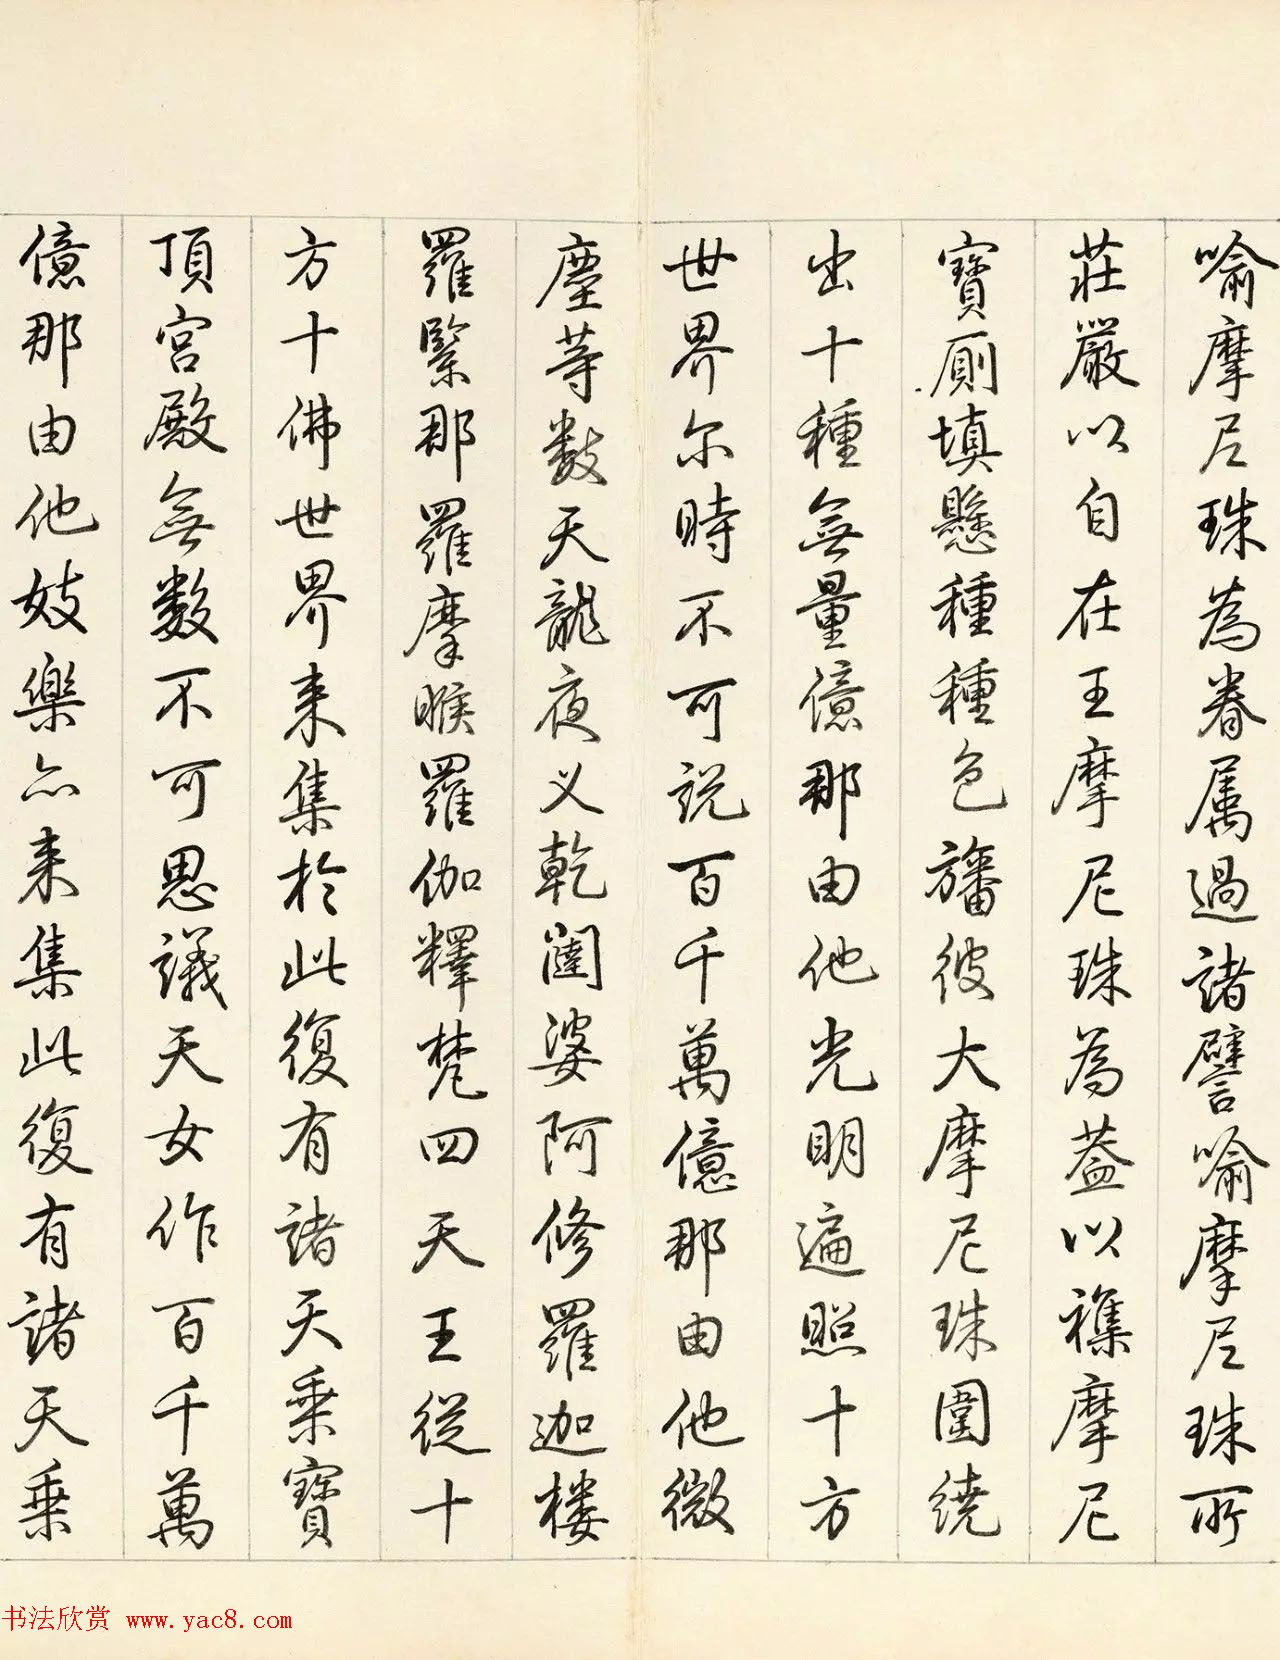 喻摩尼珠為眷属過諸譬喻摩尼珠所
莊嚴以自在王摩尼珠為蓋以襍摩尼
寶厠填懸種種色旛彼大摩尼珠圍繞
出十種無量億那由他光明遍照十方
世界尔時不可説百千萬億那由他微
塵等数天龍夜义乾闥婆阿修羅迦楼
羅緊那羅摩睺羅伽釋梵四天王從十
方十佛世界来集於此復有諸天乗寶
頂宮殿無数不可思議天女作百千萬
億那由他妓樂亦来集此復有諸天乗
书法欣赏 www.yac8.com